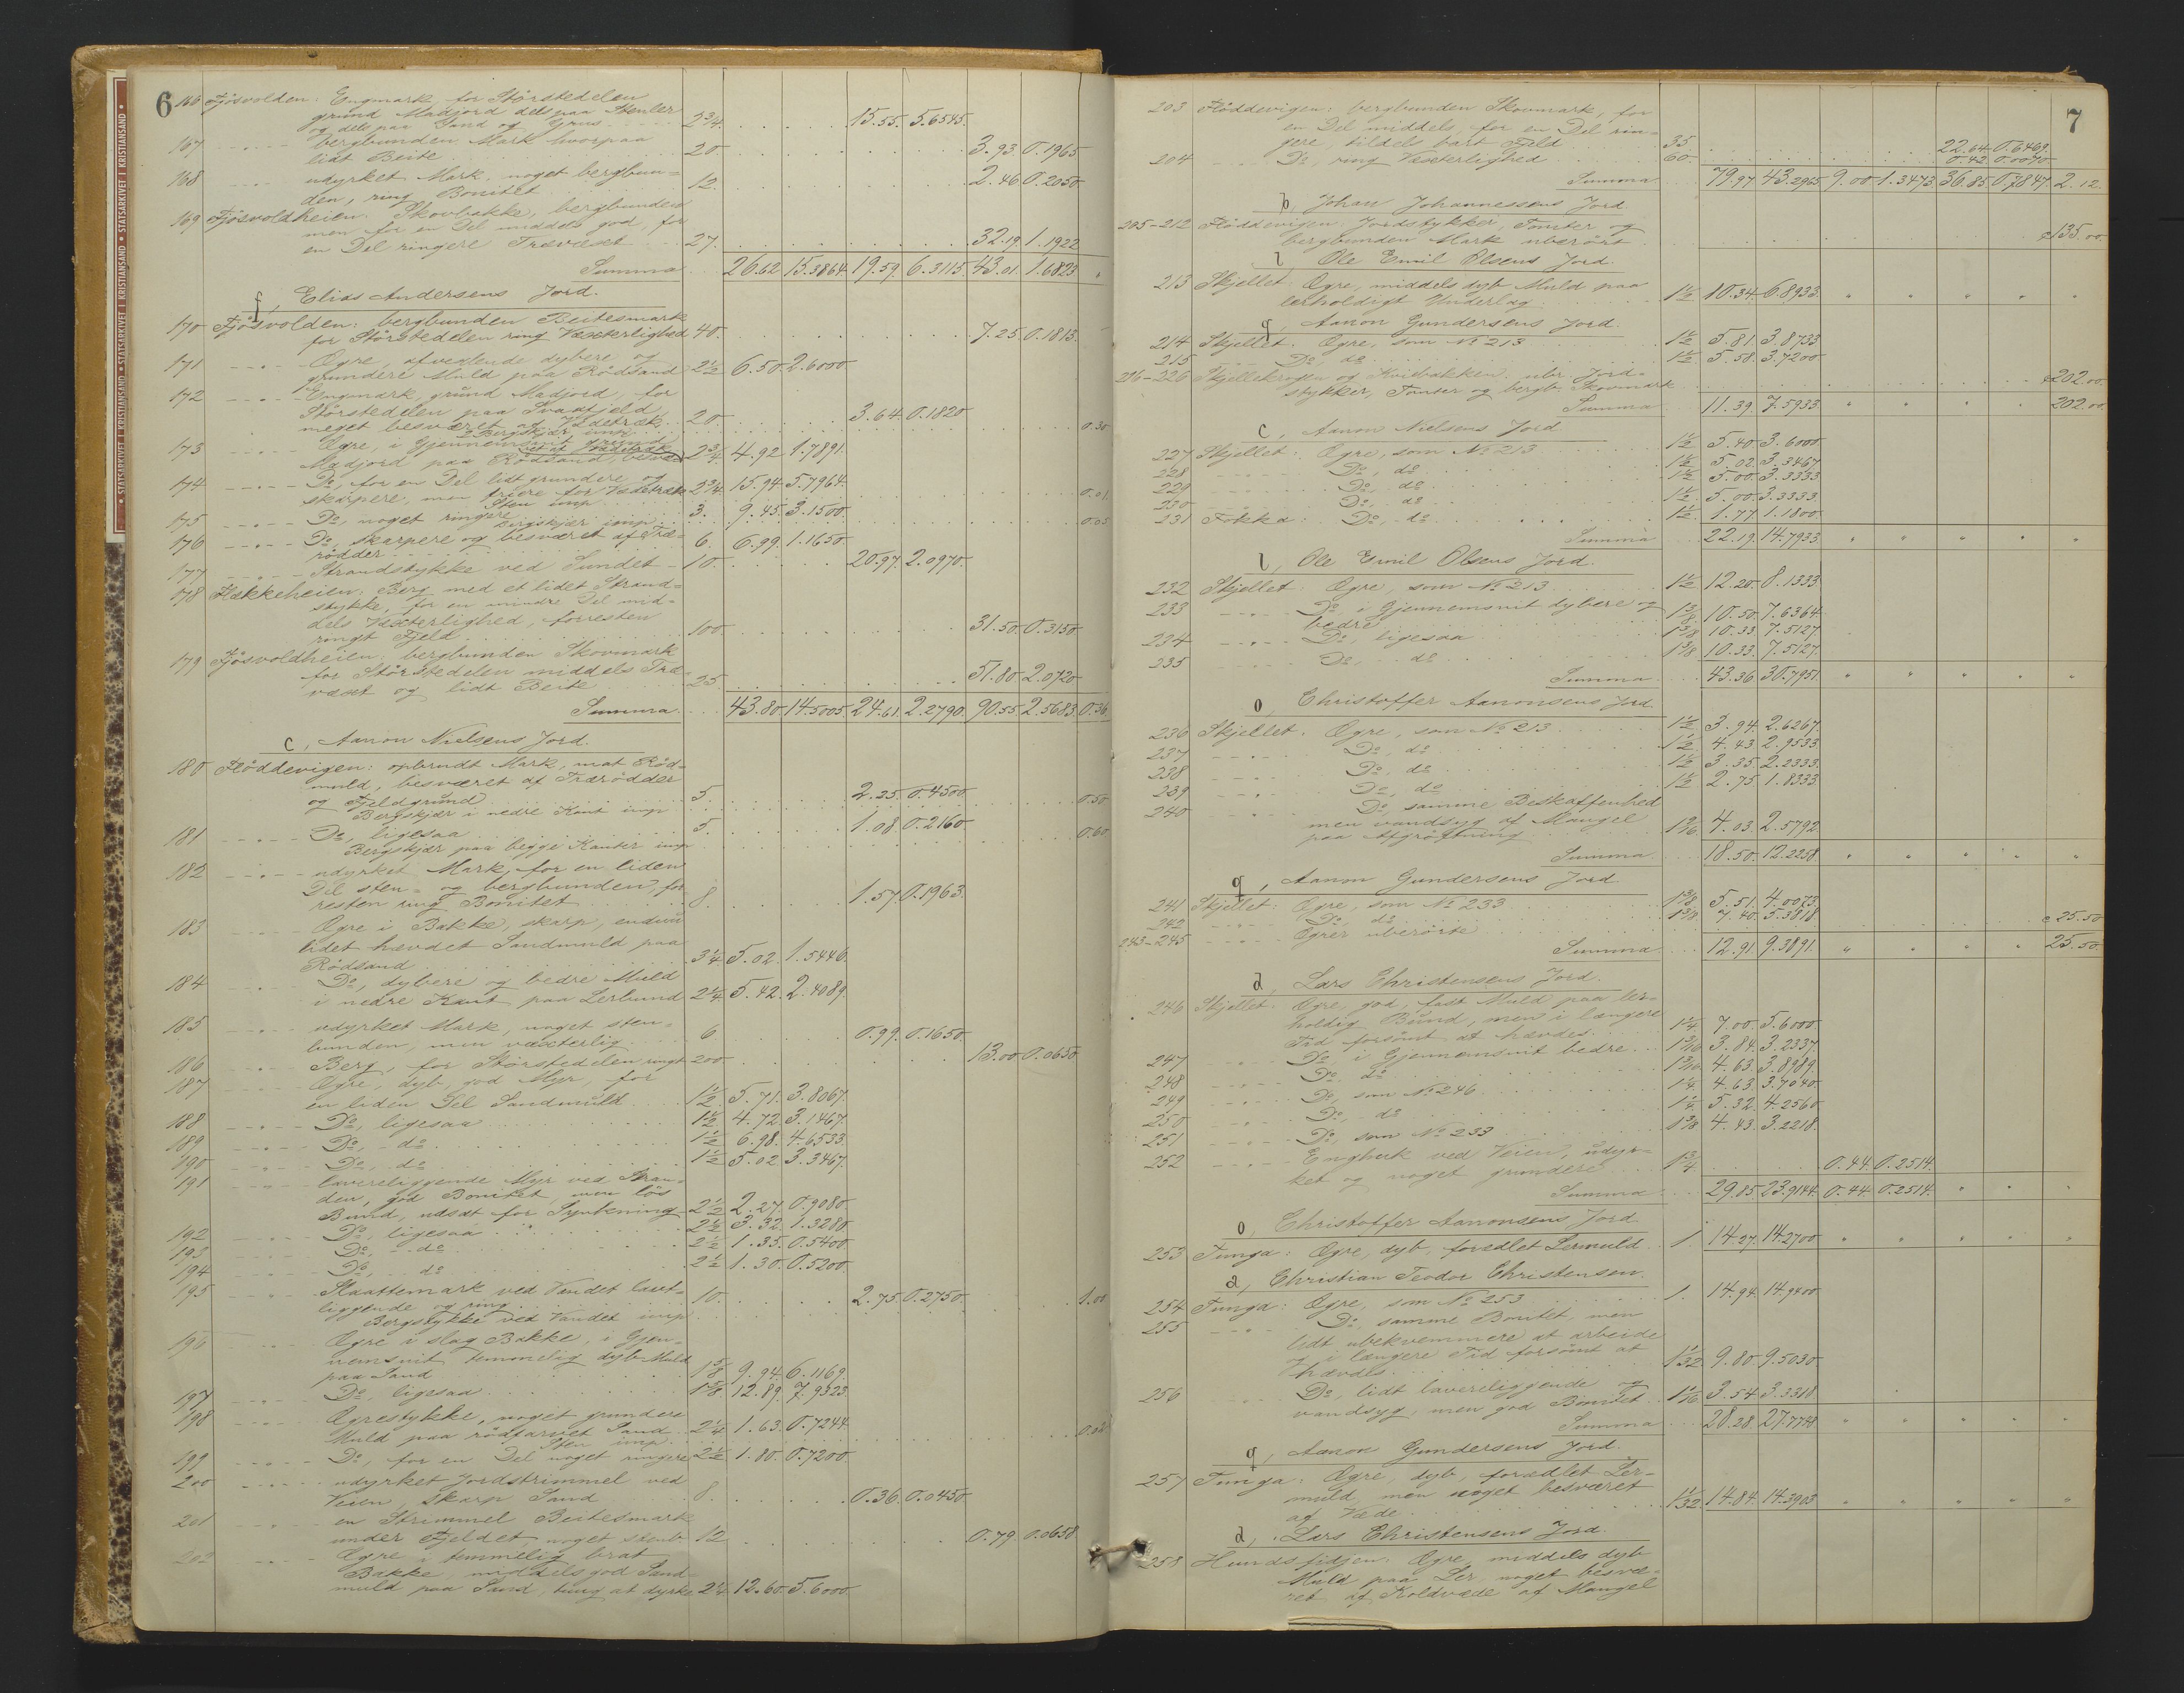 STATSARKIVET I KRISTIANSAND • STATSARKIVET I KRISTIANSAND • STATSARKIVET I KRISTIANSAND •
6
166 Fjösvolden: Engmark for Störstedelen
grund Madjord dels paa Stenler
og dels paa Sand og Grus 2 3/4 15.55. 5.6545.
167 bergbunden Mark hvorpaa
lidt Beite 20. 3.93. 0.1965
168 udyrket Mark, noget bergbun=
den, ring Bonitet 12. 2.46 0.2050
169 Fjösvoldheien: Skovbakke, bergbunden
men for en Del middels god, for
en Del ringere Trævæxt 27. 32.19. 1.1922
Summa 26.62 15.3864 19.59. 6.3115. 43.01. 1.6823 "
f, Elias Andersens Jord.
170 Fjösvolden: bergbunden Beitesmark
for Störstedelen ring Væxterlighed 40. 7.25. 0.1813.
171 Agre, afvexlende dybere og
grundere Muld paa Rödsand 2 1/2 6.50. 2.6000.
172 Engmark, grund Madjord, for
Störstedelen paa Svaafjeld,
meget besværet af Vædetræk 20. 3.64. 0.1820
Bergskjær imp. 0.30
173 Agre, i Gjennemsnit grund
Madjord paa Rödsand, besvæ=
ret af Vædetræk 2 3/4 4.92 1.7891.
174 Do, for en Del lidt grundere og
skarpere, men friere for Vædetræk 2 3/4 15.94. 5.7964.
Sten imp. 0.01
175 Do, noget ringere 3. 9.45. 3.1500.
Bergskjær imp. 0.05
176 Do, skarpere og besværet af Træ=
rödder 6. 6.99. 1.1650.
177 Strandstykke ved Sundet 10. 20.97. 2.0970.
178 Flækkeheien: Berg med et lidet Strand=
stykke, for en mindre Del mid=
dels Væxterlighed, forresten
ringt Fjeld 100. 31.50. 0.3150
179 Fjösvoldheien: bergbunden Skovmark
for Störstedelen middels Træ=
væxt og lidt Beite 25. 51.80. 2.0720
Summa 43.80. 14.5005. 24.61. 2.2790. 90.55. 2.5683. 0.36
c, Aanon Nielsens Jord.
180 Flöddevigen: opbrudt Mark, mat Röd=
muld, besværet af Trærödder
og Fjeldgrund 5. 2.25. 0.4500
Bergskjær i nedre Kant imp 0.50
181 Do, ligesaa 5. 1.08. 0.2160
Bergskjær paa begge Kanter imp 0.60
182 udyrket Mark, for en liden
Del sten= og bergbunden, for=
resten ring Bonitet 8. 1.57. 0.1963.
183 Agre i Bakke, skarp, endnu
lidet hævdet Sandmuld paa
Rödsand 3 1/4 5.02. 1.5446.
184 Do, dybere og bedre Muld
i nedre Kant paa Lerbund 2 1/4 5.42. 2.4089.
185 udyrket Mark, noget sten=
bunden, men væxterlig 6 0.99. 0.1650.
186 Berg, for Störstedelen ringt 200 13.00 0.0650
187 Agre, dyb, god Myr, for
en liden Del Sandmuld 1 1/2 5.71. 3.8067.
188 Do, ligesaa 1 1/2 4.72. 3.1467.
189 Do, do 1 1/2 6.98. 4.6533.
190 Do, do 1 1/2 5.02 3.3467.
191 lavereliggende Myr ved Stran=
den, god Bonitet, men lös
Bund, udsat for Synkning 2 1/2 2.27. 0.9080.
192 Do, ligesaa 2 1/2 3.32. 1.3280.
193 Do, do 2 1/2 1.35. 0.5400.
194 Do, do 2 1/2 1.30. 0.5200.
195 Slaattemark ved Vandet lavt=
liggende og ring 10. 2.75. 0.2750.
Bergstykke ved Vandet imp 1.00
196 Agre i slag Bakke, i Gjen=
nemsnit temmelig dyb Muld
paa Sand 1 5/8 9.94. 6.1169.
197 Do, ligesaa 1 5/8 12.89. 7.9323.
198 Agrestykke, noget grundere
Muld paa rödfarvet Sand 2 1/4 1.63. 0.7244.
Sten imp. 0.02
199 Do, for en Del noget ringere 2 1/2 1.80. 0.7200.
200 udyrket Jordstrimmel ved
Veien, skarp Sand 8. 0.36. 0.0450
201 en Strimmel Beitesmark
under Fjeldet, noget stenb. 12 0.79. 0.0658
202 Agre i temmelig brat
Bakke, middels god Sand=
muld paa Sand, tung at dyrke 2 1/4 12.60. 5.6000.
7
203 Flöddevigen: bergbunden Skovmark, for
en Del middels, for en Del rin=
gere, tildels bart Fjeld 35 22.64. 0.6469.
204 Do, ring Væxterlighed 60. 0.42 0.0070
Summa 79.97 43.2965 9.00. 1.3473. 36.85. 0.7847. 2.12.
b, Johan Johannessens Jord
205-212 Flöddevigen: Jordstykker, Tomter og
bergbunden Mark uberört 135.00.
l, Ole Emil Olsens Jord.
213 Skjellet: Agre, middels dyb Muld paa
lerholdigt Underlag 1 1/2 10.34. 6.8933. " " " " "
q, Aanon Gundersens Jord.
214 Skjellet: Agre, som No 213 1 1/2 5.81. 3.8733
215 Do, do 1 1/2 5.58. 3.7200
216-226 Skjellekrogen og Kvibakken ubr. Jord=
stykker, Tomter og bergb. Skovmark 202.00.
Summa 11.39. 7.5933. " " " " 202.00.
c, Aanon Nielsens Jord
227 Skjellet: Agre, som No 213 1 1/2 5.40 3.6000
228 Do, do 1 1/2 5.02. 3.3467
229 Do, do 1 1/2 5.00. 3.3333
230 Do, do 1 1/2 5.00. 3.3333.
231 Fokka: Do, do 1 1/2 1.77 1.1800
Summa 22.19. 14.7933. " " " " "
l, Ole Emil Olsens Jord.
232 Skjellet: Agre, som No 213 1 1/2 12.20. 8.1333
233 Do, i Gjennemsnit dybere og
bedre 1 3/8 10.50. 7.6364.
234 Do, ligesaa 1 3/8 10.33. 7.5127.
235 Do, do 1 3/8 10.33. 7.5127.
Summa 43.36. 30.7951. " " " " "
o, Christoffer Aanonsens Jord
236 Skjellet: Agre, som No 213 1 1/2 3.94. 2.6267.
237 Do, do 1 1/2 4.43. 2.9533.
238 Do, do 1 1/2 3.35. 2.2333.
239 Do, do 1 1/2 2.75. 1.8333.
240 Do, samme Beskaffenhed
men vandsyg af Mangel
paa Afgröftning 1 9/16 4.03. 2.5792.
Summa 18.50. 12.2258 " " " " "
q, Aanon Gundersens Jord
241 Skjellet: Agre, som No 233 1 3/8 5.51. 4.0073.
242 Do, do 1 3/8 7.40. 5.3818.
243-245 Agrer uberörte 25.50
Summa 12.91. 9.3891. " " " " 25.50.
d, Lars Christensens Jord.
246 Skjellet: Agre, god, fast Muld paa ler=
holdig Bund, men i længere
Tid forsömt at hævdes 1 1/4 7.00. 5.6000
247 Do, i Gjennemsnit bedre 1 3/16 3.84. 3.2337.
248 Do, do 1 3/16 4.63. 3.8989.
249 Do, som No 246 1 1/4 4.63. 3.7040.
250 Do, do 1 1/4 5.32. 4.2560
251 Do, som No 233 1 3/8 4.43. 3.2218.
252 Engbæk ved Veien, udyr=
ket og noget grundere 1 3/4 0.44. 0.2514.
Summa 29.85 23.9144. 0.44. 0.2514. " " "
o, Christoffer Aanonsens Jord
253 Tunga: Agre, dyb, forædlet Lermuld 1. 14.27. 14.2700 " " " " "
a, Christian Teodor Christensen.
254 Tunga: Agre, som No 253 1. 14.94. 14.9400
255 Do, samme Bonitet, men
lidt ubekvemmere at arbeide
og i længere Tid forsömt at
hævdes 1 1/32 9.80. 9.5030.
256 Do, lidt lavereliggende og
vandsyg, men god Bonitet 1 1/16 3.54 3.3318
Summa 28.28. 27.7748 " " " " "
q, Aanon Gundersens Jord.
257 Tunga: Agre, dyb, forædlet Ler=
muld, men noget besværet
af Væde 1 1/32 14.84. 14.3903 " " " " "
d, Lars Christensens Jord.
258 Hundsfidjen: Agre, middels dyb
Muld paa Ler, noget besvæ=
ret af Koldvæde af Mangel